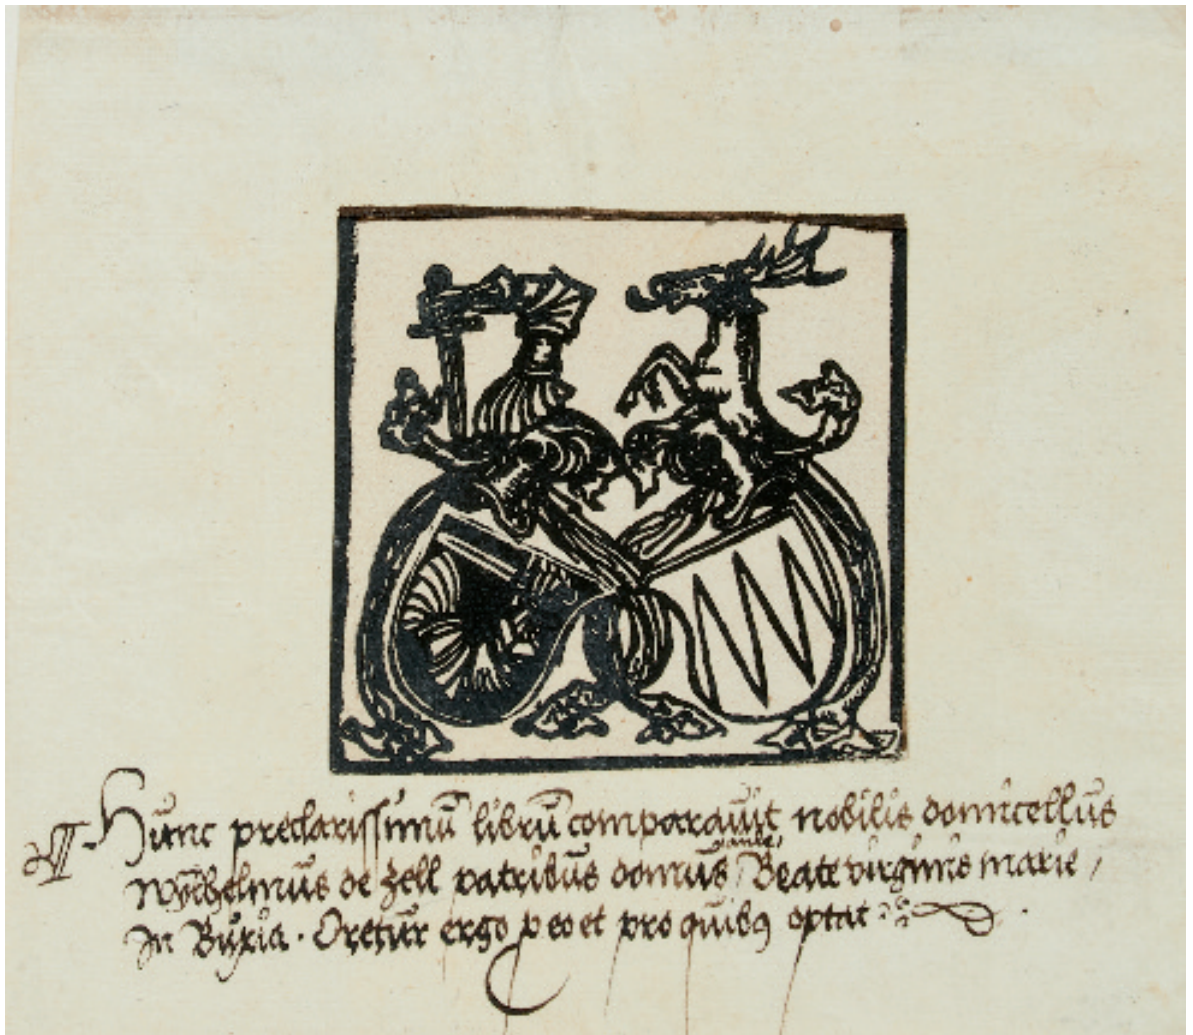 Hunc preclarissimū librū comparauit nobilis domicellus
Wylhelmus de Zell patribus domus aule / Beate virginis marie /
In Buxia . Oretur ergo p eo et pro quibus optat